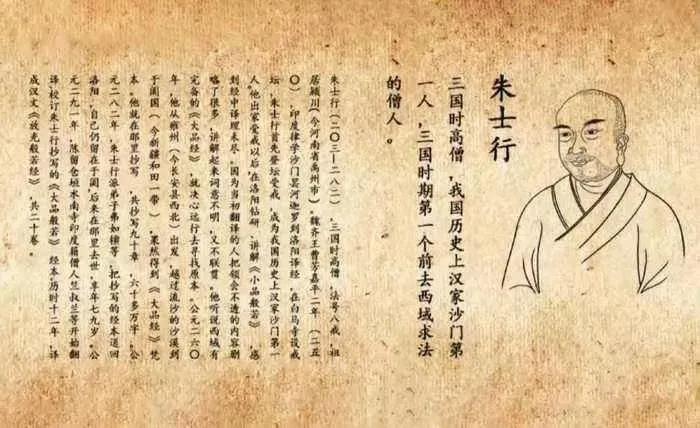 朱士行
三国时高僧，我国历史上汉家沙门第
一人，三国时期第一个前去西域求法
的僧人。
朱士行（二〇三—二八二），三国时高僧，法号八戒，祖
居颍川（今河南省禹州市）。魏齐王曹芳嘉平二年（二五
〇），印度律学沙门昙河迦罗到洛阳译经，在白马寺设戒
坛，朱士行首先登坛受戒，成为我国历史上汉家沙门第一
人。他出家受戒以后，在洛阳钻研、讲解《小品般若》，感
到经中译理未尽。因为当初翻译的人把领会不透的内容删
略了很多，讲解起来词意不明，又不联贯。他听说西域有
完备的《大品经》，就决心远行去寻找原本。公元二六〇
年，他从雍州（今长安县西北）出发，越过流沙的沙漠到
于阗国（今新疆和田一带），果然得到《大品经》梵
本。他就在那里抄写，共抄写九十章，六十多万字。公
元二八二年，朱士行派弟子弗如檀等，把抄写的经本送回
洛阳，自己仍留在于阗，后来在那里去世，享年七九岁。公
元二九一年，陈留仓垣水南寺印度籍僧人竺叔兰等开始翻
译校订朱士行抄写的《大品般若》经本。历时十二年，译
成汉文《放光般若经》，共二十卷。